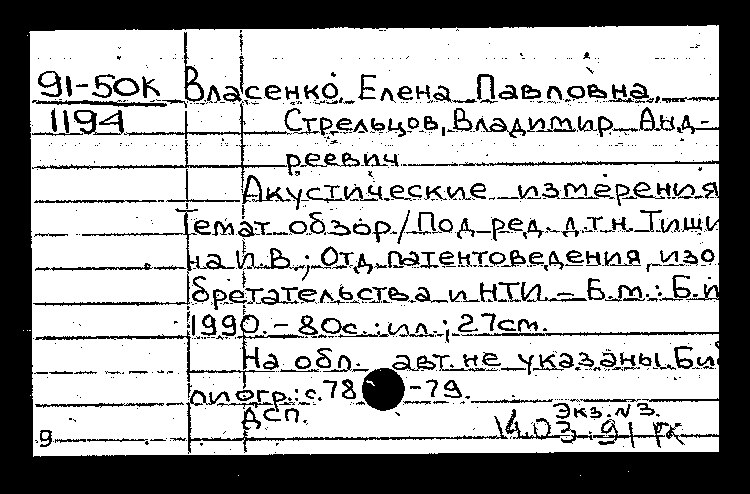 91-50к Власенко, Елена Павловна,
1194 Стрельцов, Владимир Анд-
реевич
Акустические измерения
Темат. обзор / Под ред. д.т.н. Тиши
на И.В.; Отд. патентоведения, изо
бретательства и НТИ. – Б.м.: Б.и
1990. – 80с.: ил.; 27cm.
На обл. авт. не указаны. Биб
лиогр.: с. 78-79.
ДСП. Экз. N3.
9 14.03.91